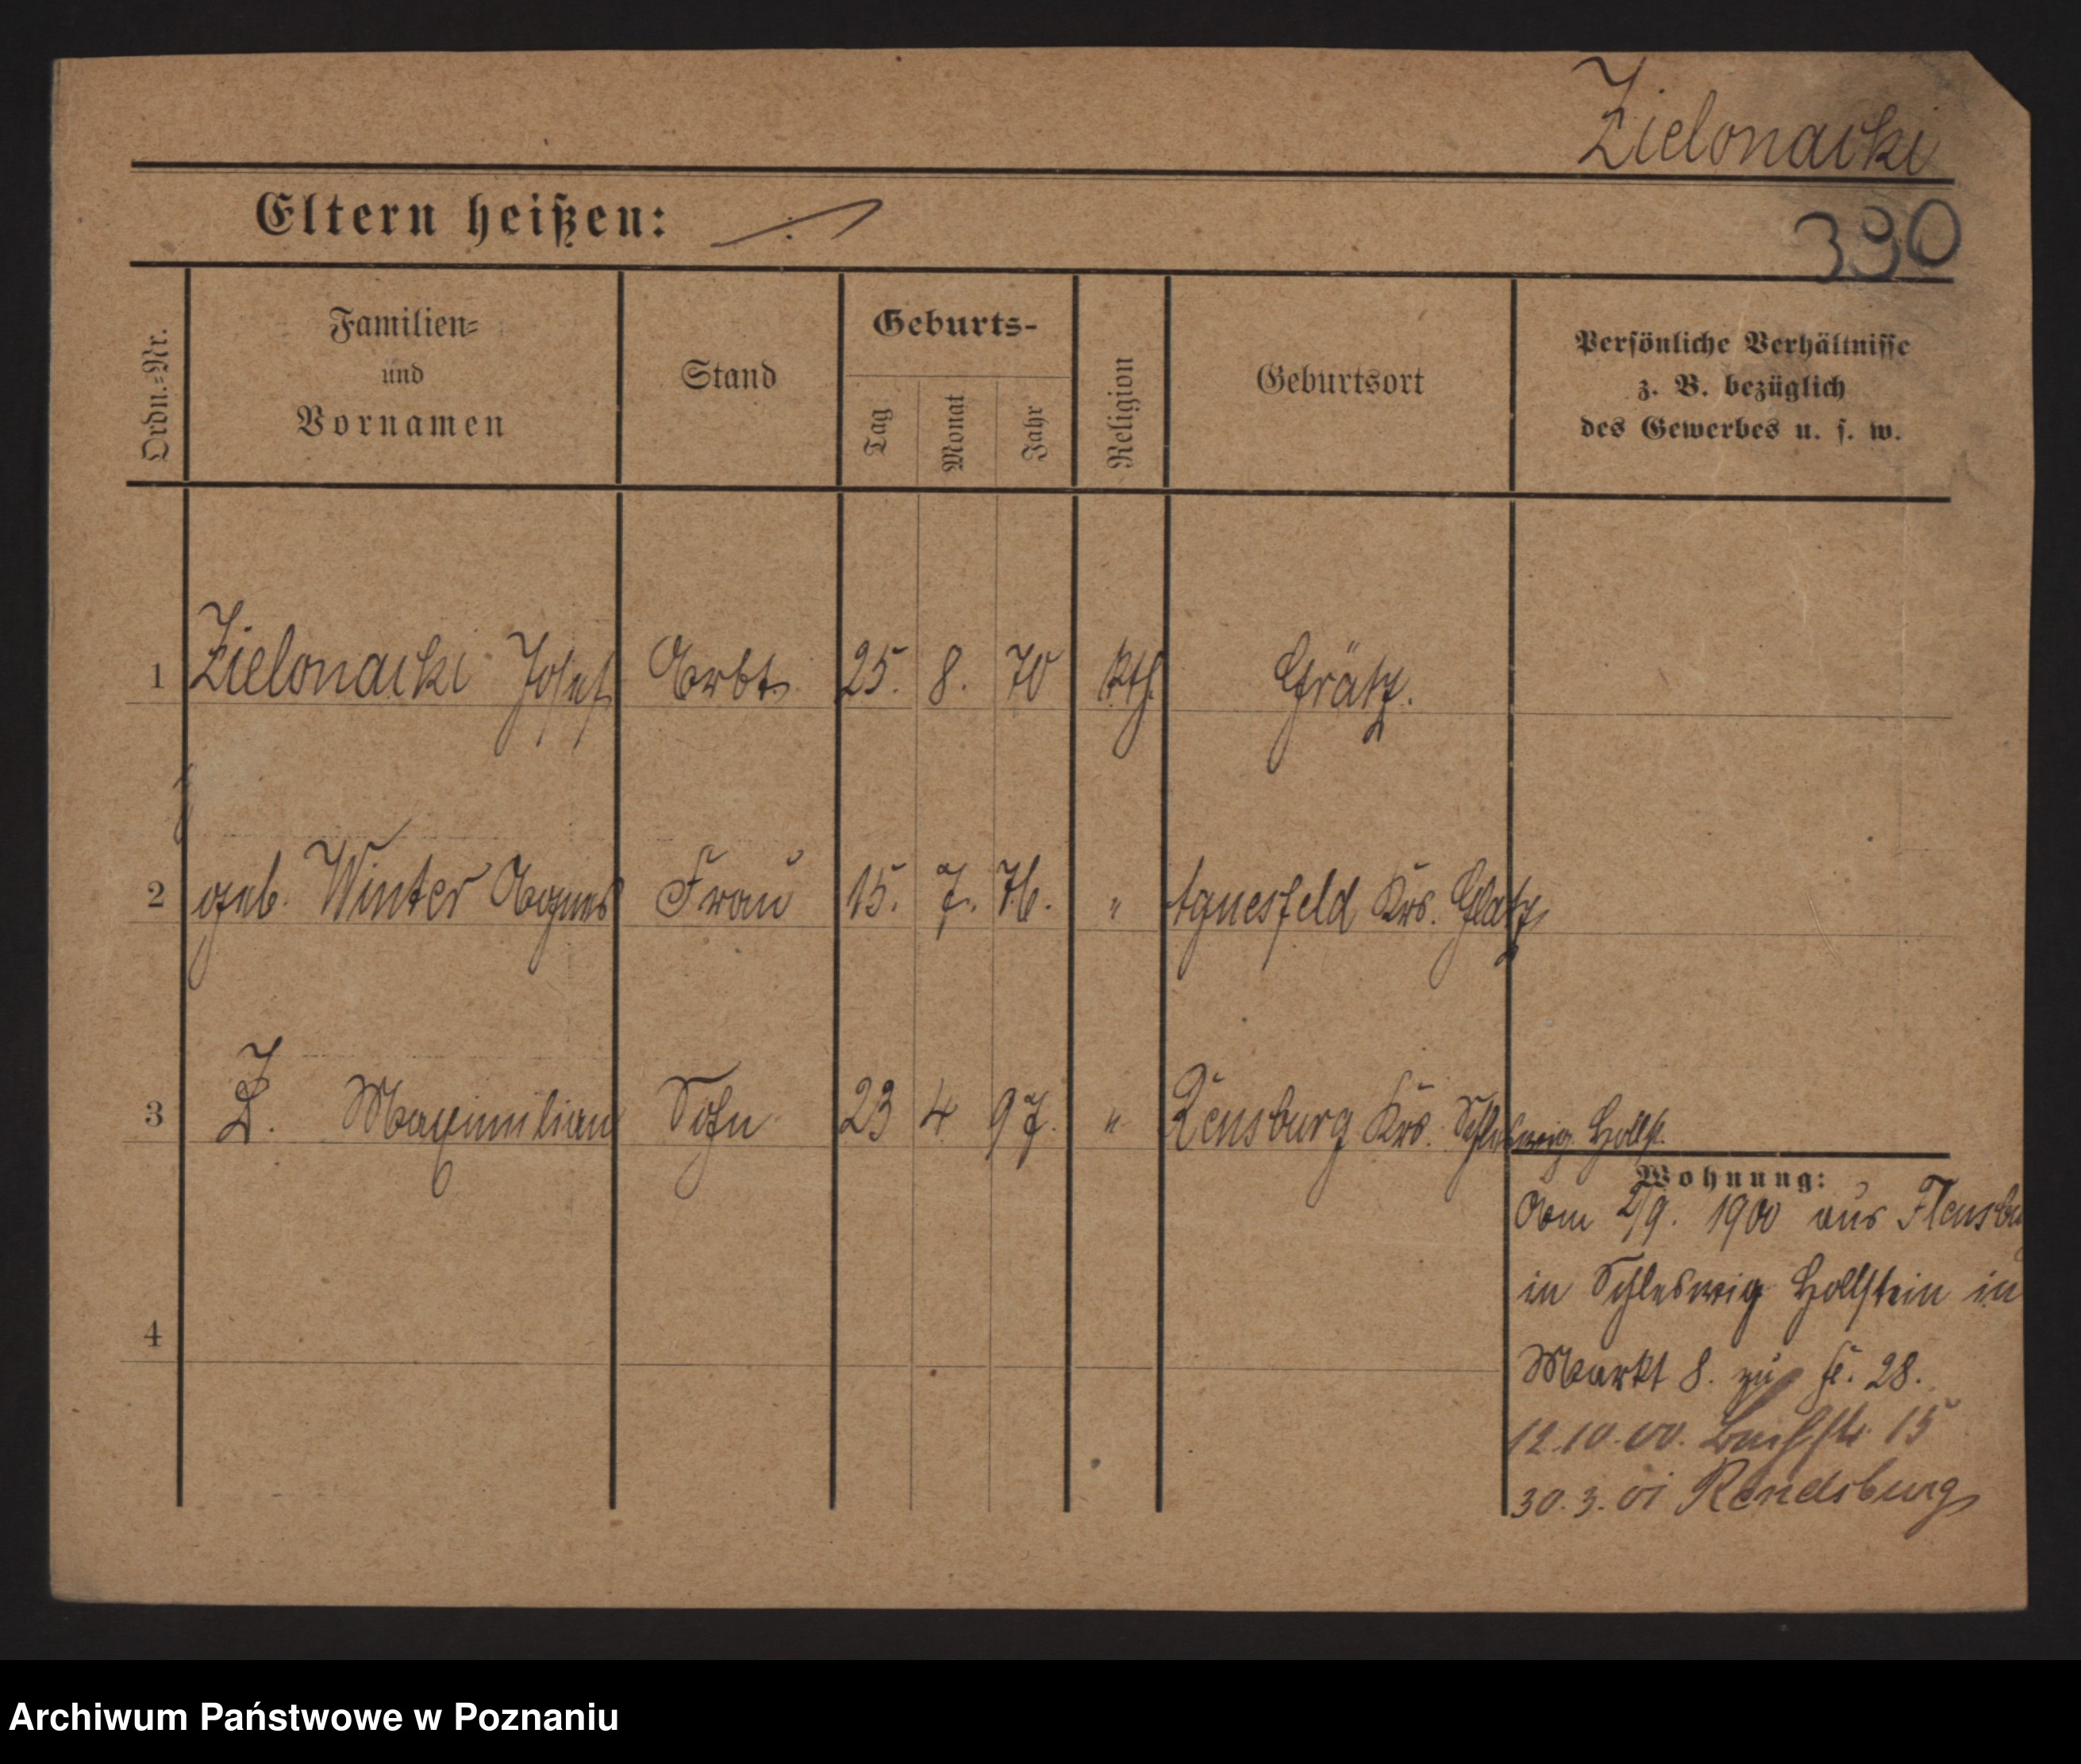 Zielonacki
Eltern heißen:
390
Ordn.-Nr.
Familien-
und
Vornamen
Stand
Geburts-
Tag
Monat
Jahr
Religion
Geburtsort
Persönliche Verhältnisse
z. B. bezüglich
des Gewerbes u. s. w.
1 Zielonacki Josef Arbt. 25. 8. 70 Kth. Grätz.
2 geb. Winter Agnes Frau 15. 7. 76. " Agnesfeld Krs. Glatz
3 Z. Maximilian Sohn 23 4 97. " Rensburg Krs. Schleswig Hollst.
Wohnung:
Vom 2/9. 1900 aus Flensbu
in Schleswig Hollstein in
Markt 8. zu 28.
12.10.00. 15
30.3.01 Rendsburg
4
Archiwum Państwowe w Poznaniu